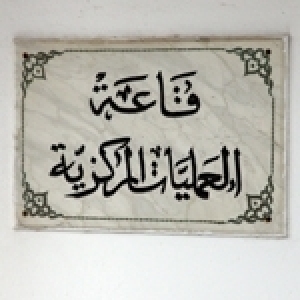 قاعة
العمليات المركزية